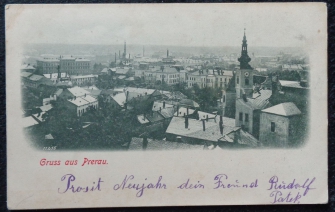 Gruss aus Prerau.
Prosit Neujahr dein Freund Rudolf